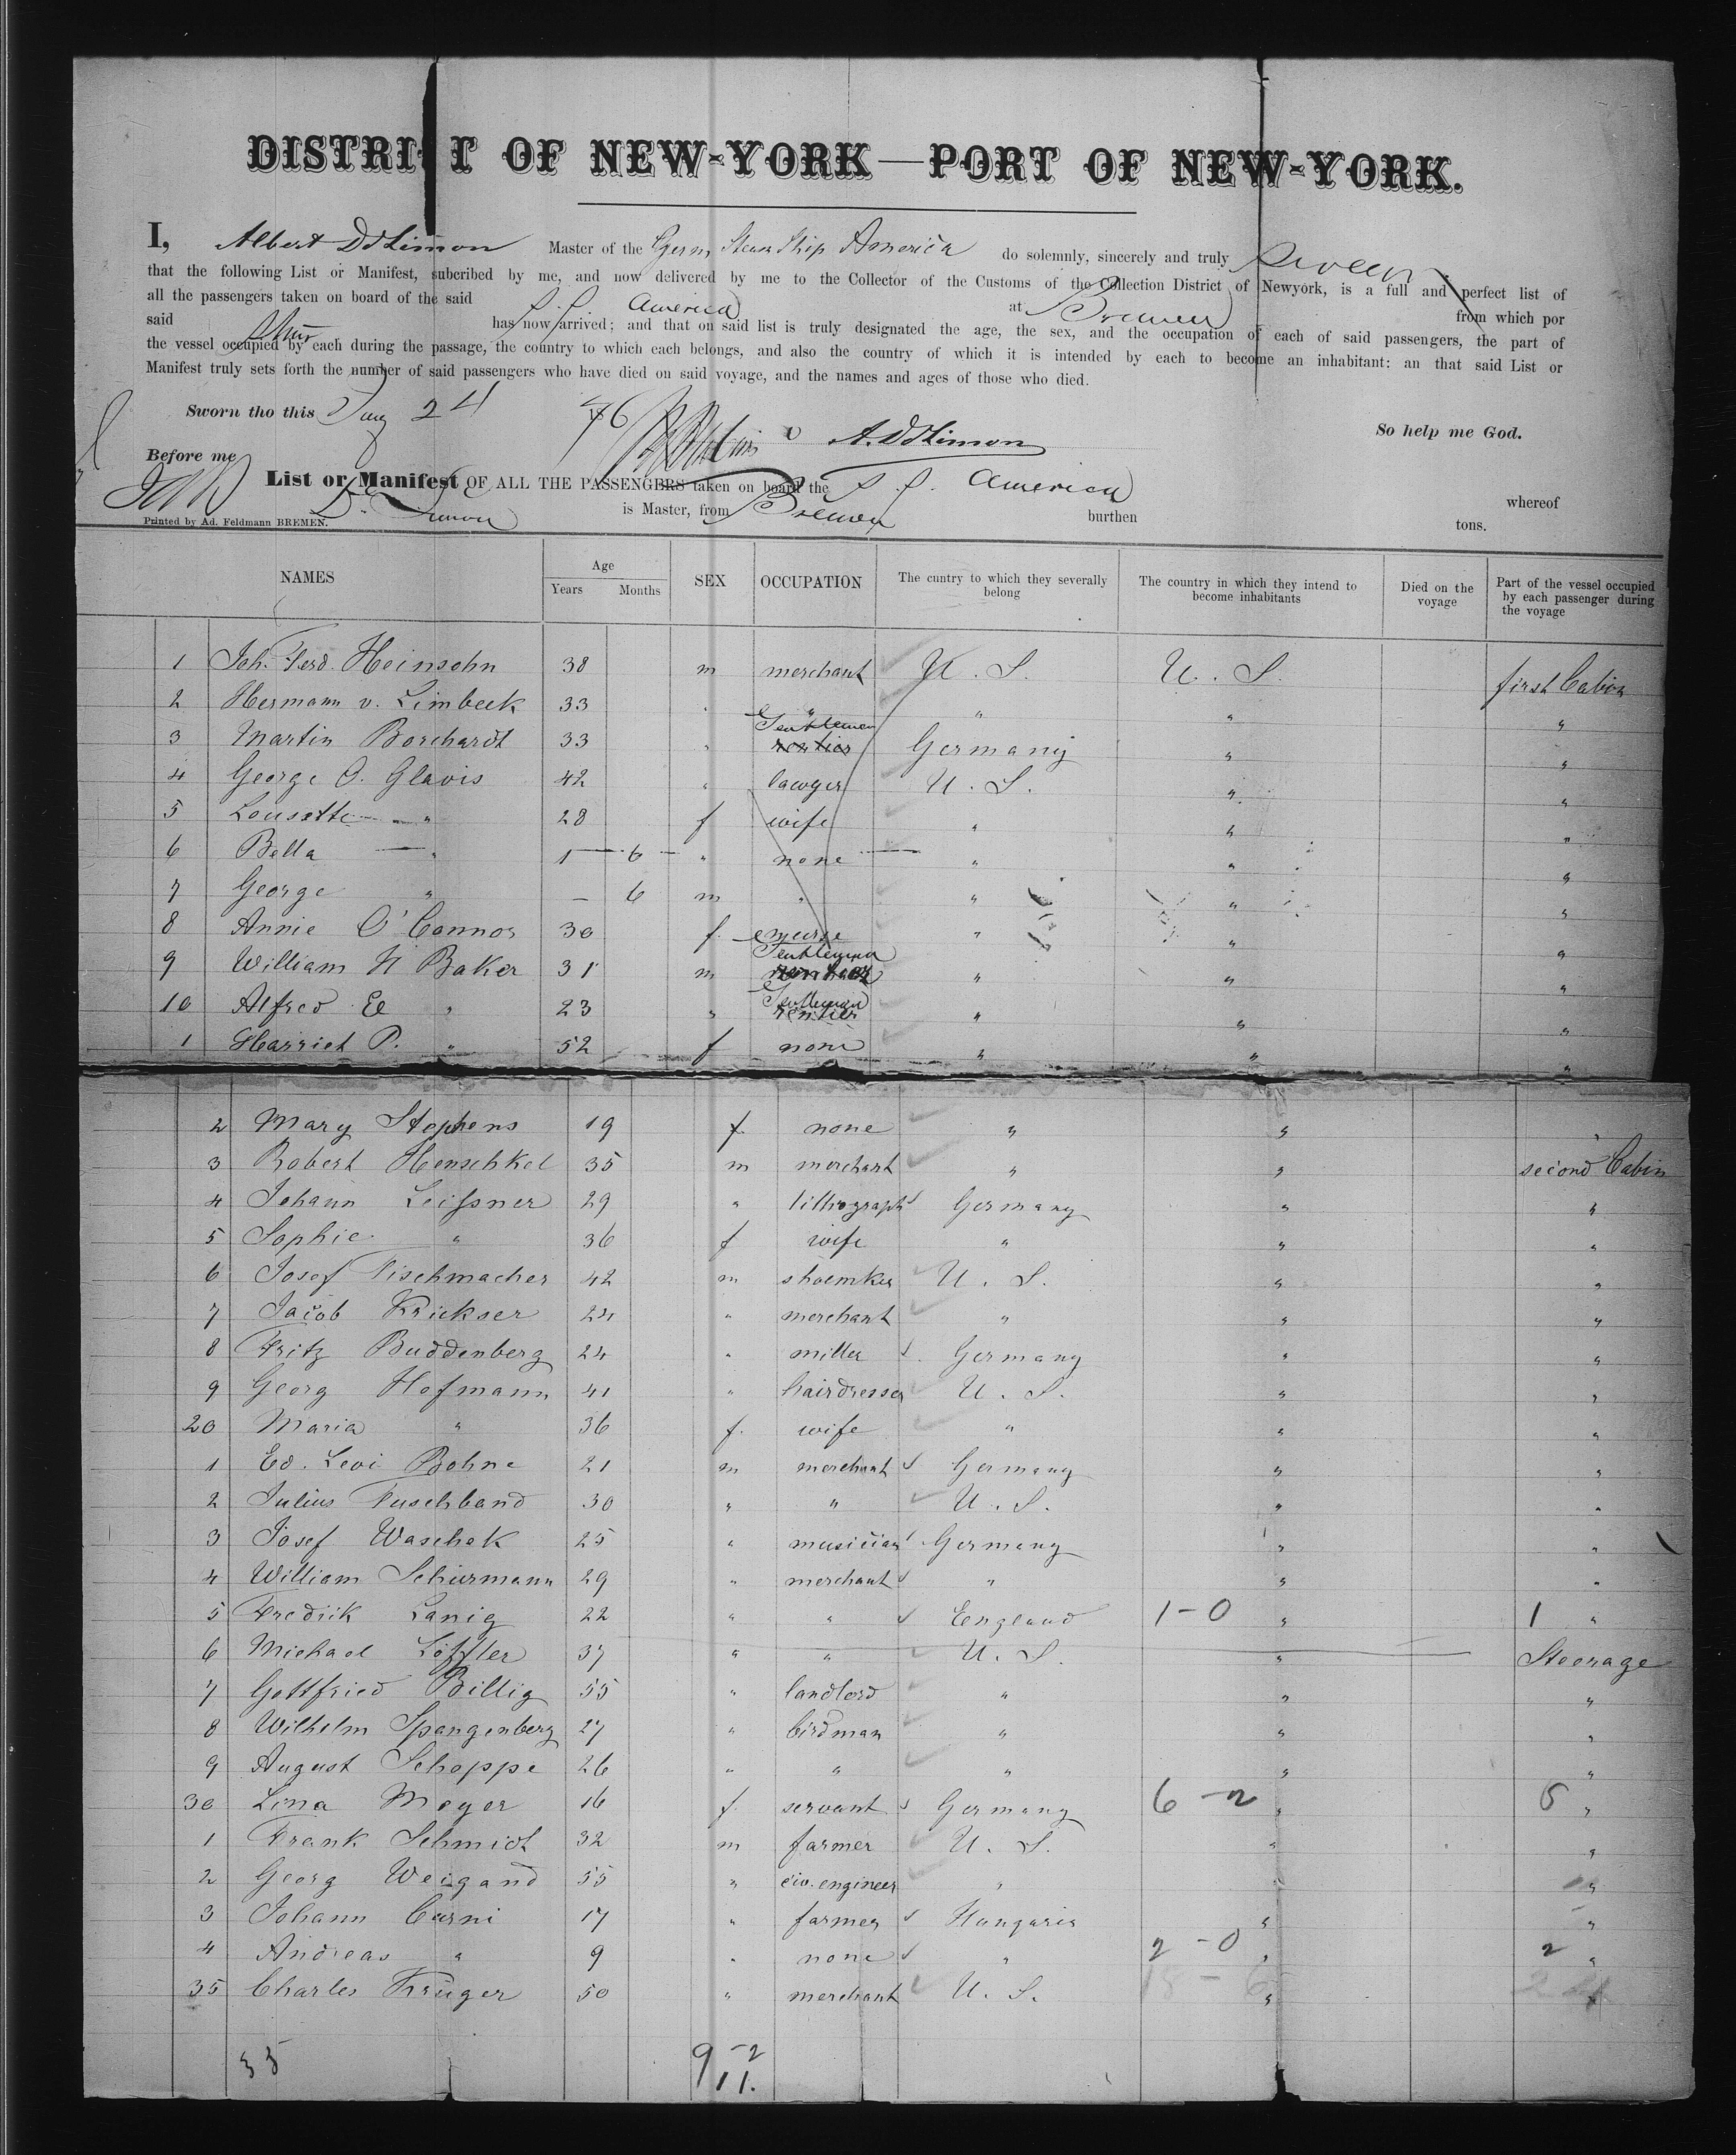 DISTRICT OF NEW-YORK—PORT OF NEW-YORK.
I, Albert D. Limon Master of the Germ Steam Ship America do solemnly, sincerely and truly
that the following List or Manifest, subcribed by me, and now delivered by me to the Collector of the Customs of the Collection District of Newyork, is a full and perfect list of
all the passengers taken on board of the said S. S. America at Bremen from which por
said has now arrived; and that on said list is truly designated the age, the sex, and the occupation of each of said passengers, the part of
the vessel occupied by each during the passage, the country to which each belongs, and also the country of which it is intended by each to become an inhabitant: an that said List or
Manifest truly sets forth the number of said passengers who have died on said voyage, and the names and ages of those who died.
Sworn tho this 24 76 So help me God.
Before me
List or Manifest OF ALL THE PASSENGERS taken on board the S. S. America whereof
is Master, from Bremen burthen tons.
Printed by Ad. Feldmann BREMEN.
NAMES Age Years Months SEX OCCUPATION The cuntry to which they severally belong The country in which they intend to become inhabitants Died on the voyage Part of the vessel occupied by each passenger during the voyage
1 Joh. Ferd. Heinsohn 38 m merchant U. S. U. S. first Cabin
2 Hermann v. Limbeck 33 " " " " "
3 Martin Borchardt 33 " Gentlemen rentier Germany " "
4 George O. Glavis 42 " lawyer U. S. " "
5 Lousette " 28 f wife " " "
6 Bella " 1 6 " none " " "
7 George " — 6 m " " " "
8 Annie O'Connor 30 f. nurse " " "
9 William H Baker 31 m Gentleman rentier " " "
10 Alfred E " 23 " Gentleman rentier " " "
1 Harriet P. " 52 f none " " "
2 Mary Stephens 19 f. none " " "
3 Robert Henschkel 35 m merchant " " second Cabin
4 Johann Leissner 29 " lithograph Germany " "
5 Sophie " 36 f wife " " "
6 Josef Fischmacher 42 m shoemker U. S. " "
7 Jacob Krickser 24 " merchant " " "
8 Fritz Buddenberg 24 " miller Germany " "
9 Georg Hofmann 41 " hairdresser U. S. " "
20 Maria " 36 f. wife " " "
1 Ed. Levi Bohne 21 m merchant Germany " "
2 Julius Fuschband 30 " " U. S. " "
3 Josef Waschek 25 " musician Germany " "
4 William Schürmann 29 " merchant " " "
5 Fredrik Lanig 22 " " England 1-0 " 1 "
6 Michael Löffler 37 " " U. S. " Steerage
7 Gottfried Billig 55 " landlord " " "
8 Wilhelm Spangenberg 27 " birdman " " "
9 August Schoppe 26 " " " " "
30 Lina Meyer 16 f. servant Germany 6-2 " 5 "
1 Frank Schmidt 32 m farmer U. S. " "
2 Georg Weigand 55 " civ. engineer " " "
3 Johann Curni 17 " farmer Hungaria " "
4 Andreas " 9 " none " 2-0 " 2 "
35 Charles Krüger 50 " merchant U. S. 18-6 " 24
35 9-2
11.